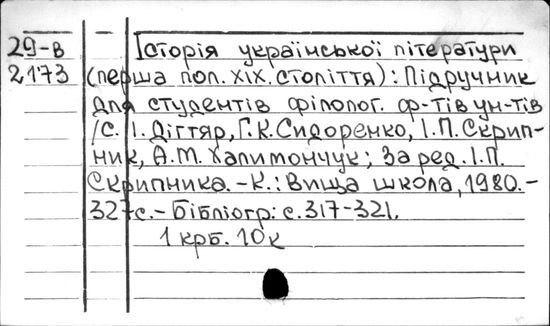 29-в Історія української літератури
2173 (перша пол. XIX. століття): Підручник
для студентів філолог. ф-тів ун-тів
/С. І. Дігтяр, Г. К. Сидоренко, І. П. Скрип-
ник, А. М. Халимончук; За ред. І. П.
Скрипника. – К.: Вища школа, 1980. –
327с. – Бібліогр: с. 317-321.
1 крб. 10к